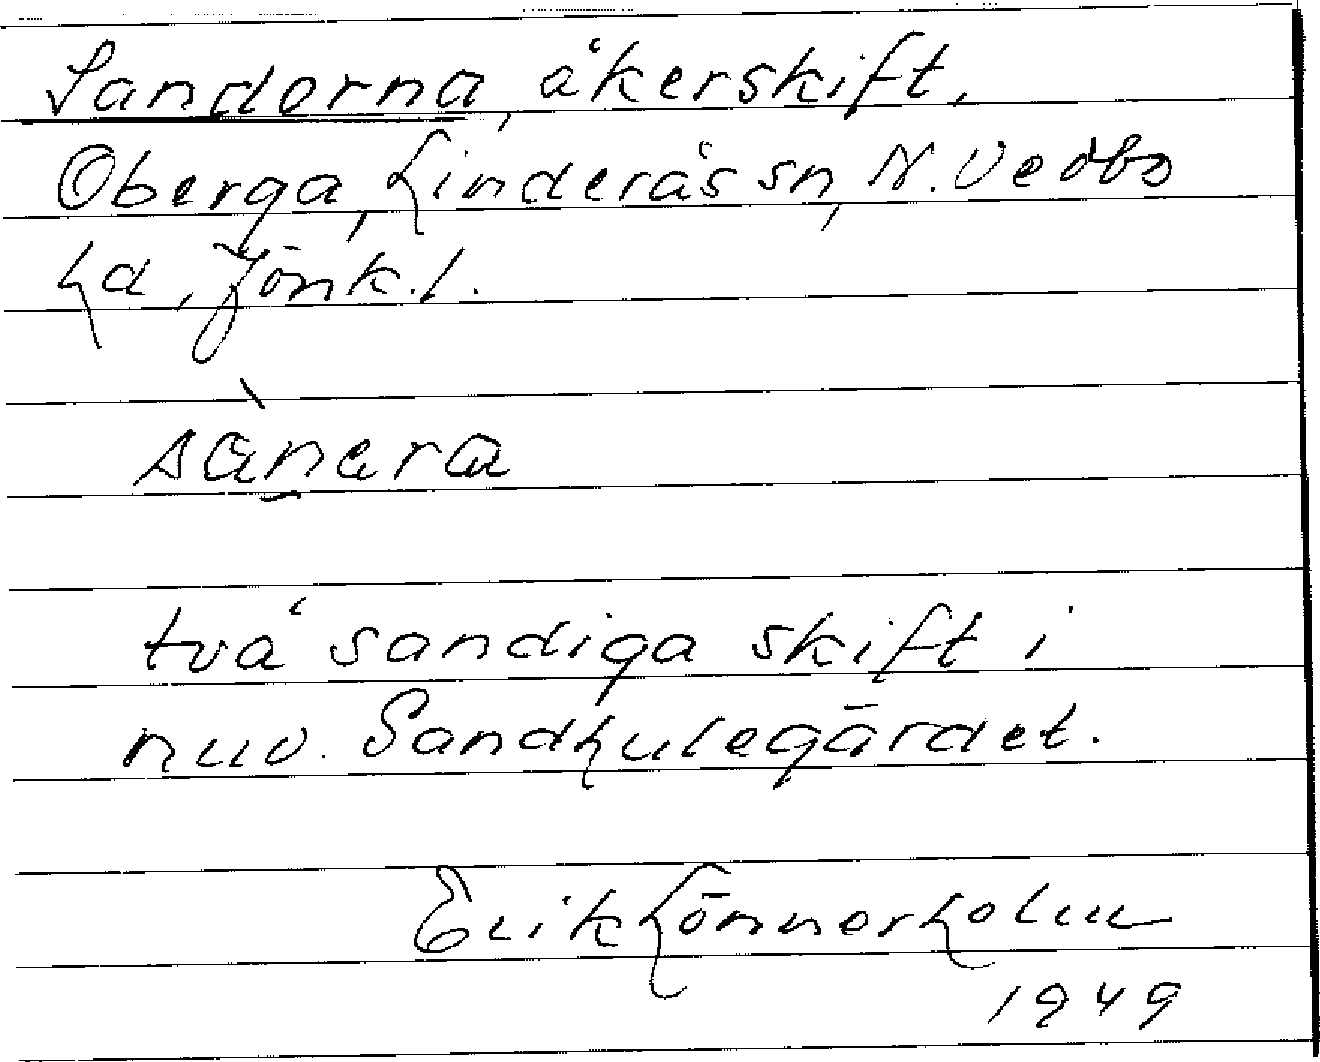 Sanderna, åkerskift,
Oberga, Linderås sn, N. Vedbo
hd, Jönk. l.
sànera
två sandiga skift i
nuv. Sandhulegärdet.
Erik Lönnerholm
1949